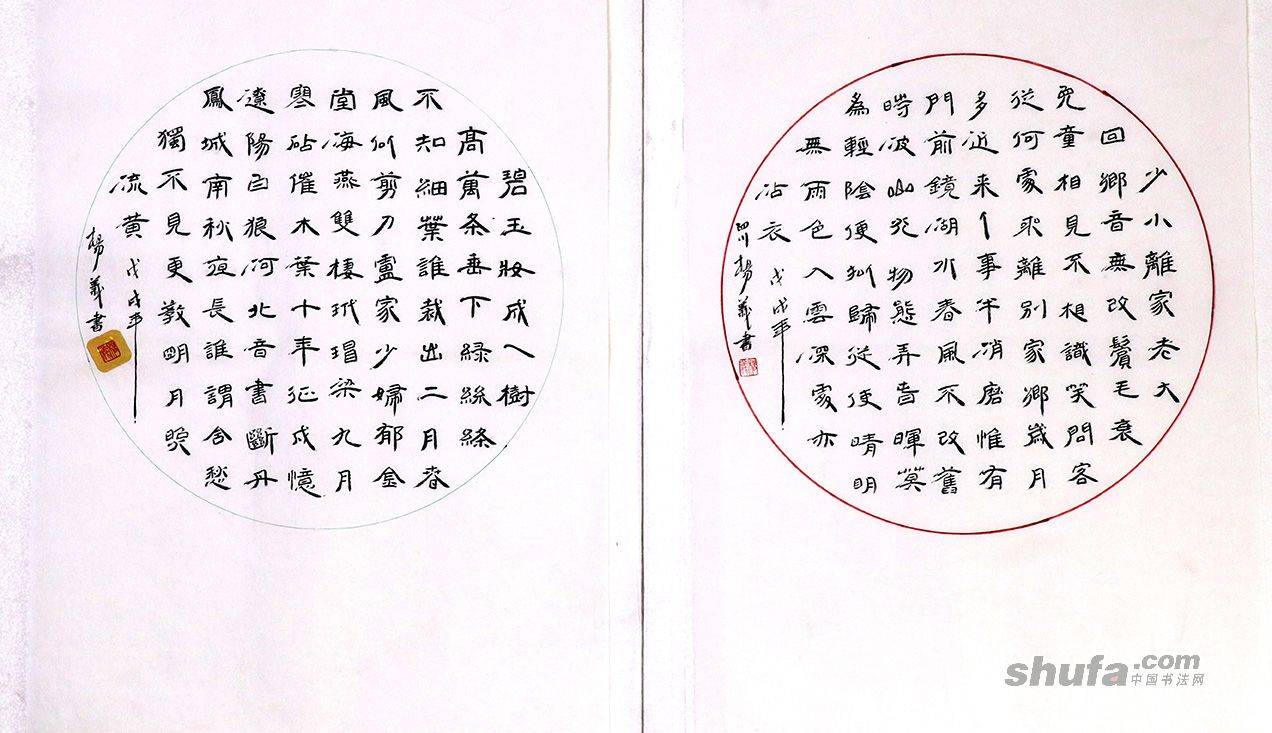 少小離家老大
回鄉音無改鬢毛衰
兒童相見不相識笑問客
從何處来離別家鄉歲月
多近来人事半消磨惟有
門前鏡湖水春風不改舊
時波山光物態弄春暉莫
為輕陰便拟歸從使晴明
無雨色入雲深處亦
沾衣 戊戌年
四川楊義書
碧玉妝成一樹
高萬条垂下綠絲絛
不知細葉誰裁出二月春
風似剪刀盧家少婦郁金
堂海燕雙棲玳瑁梁九月
寒砧催木葉十年征戍憶
遼陽白狼河北音書斷丹
鳳城南秋夜長誰謂含愁
獨不見更教明月照
流黃 戊戌年
楊義書
shufa.com
中国书法网